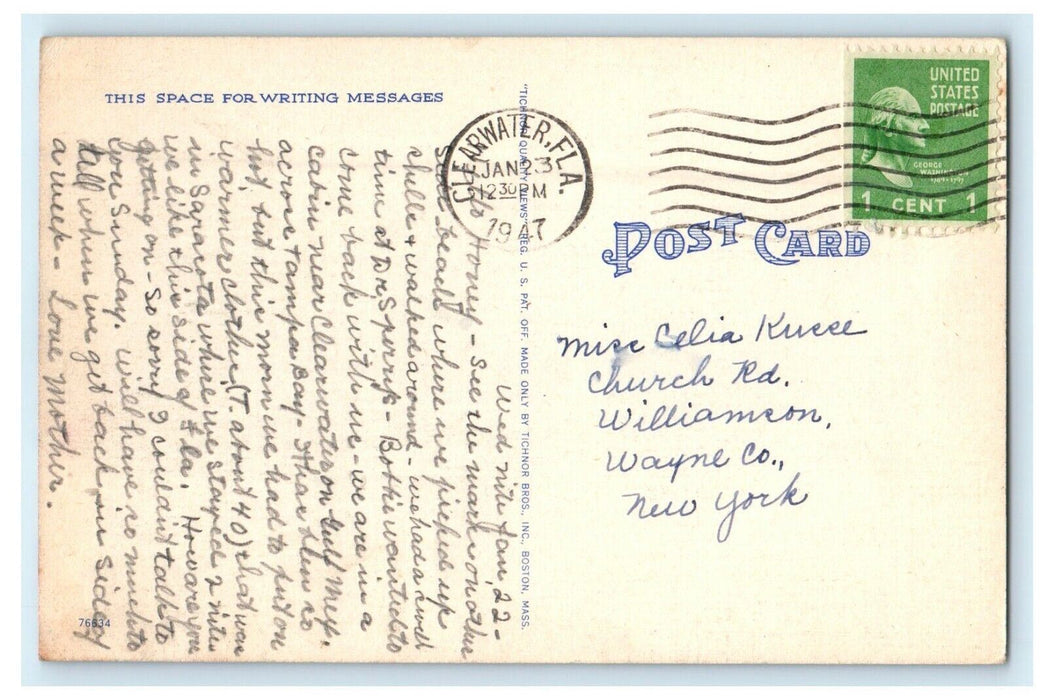 THIS SPACE FOR WRITING MESSAGES
Wed nite Jan, 22 -
Honey - See the mark on other
side beach where we picked up
shells & walked around - we had a swell
time at Dr. Sperrys - Bothie wanted to
come back with me - we are in a
cabin near Clearwater on Gulf Mex.
across Tampa Bay -
hot, but this morn we had to put on
warmer clothes, (T. about 40) that was
in Sarasota where we stayed 2 nites
we like this side of Fla. How are you
getting on - So sorry I couldn't talk to
you Sunday. Will have so much to
tell when we get back in side of
a week - Love Mother.
76634
"TICHNOR QUALITY VIEWS" REG. U. S. PAT. OFF. MADE ONLY BY TICHNOR BROS., INC., BOSTON, MASS.
CLEARWATER, FLA.
JAN 23
12 30 PM
1947
UNITED
STATES
POSTAGE
GEORGE
WASHINGTON
1 CENT 1
POST CARD
Miss Celia Kusse
Church Rd.
Williamson,
Wayne Co.,
New York